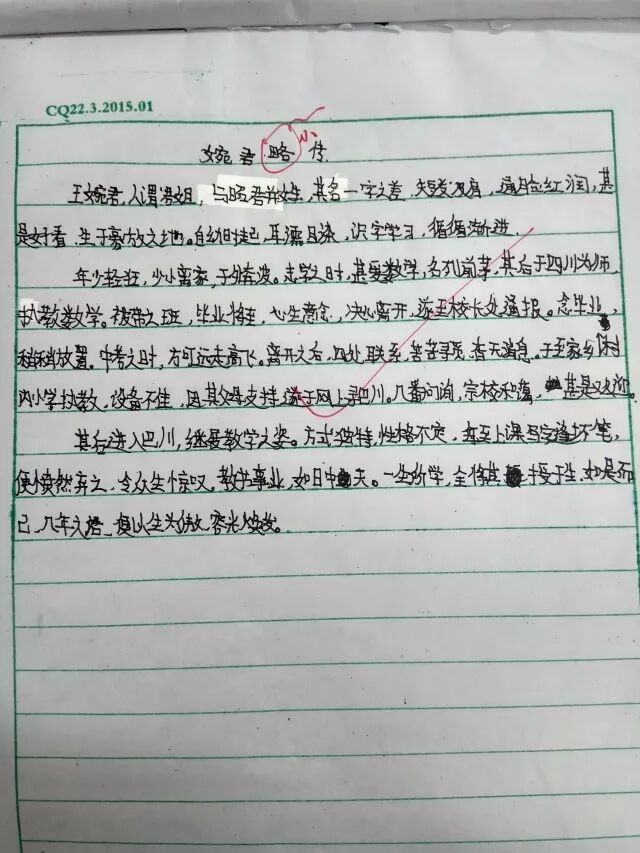 CQ22.3.2015.01
小
婉君略传
王婉君,人谓君姐,与昭君并女生,其名一字之差,短发及肩,通脸红润,甚
是好看,生于豪放之地。自幼捷足,耳濡目染,识字学习,循循渐进.
年少轻狂,少小离家,于外奔波。志学之时,甚爱数学,名列前茅,其后于四川为师,
执教数学。被带之班,毕业将至,心生意念,决心离开,遂至校长处通报。念毕业,
稍稍放置。中考之时,方可远走高飞。离开之后,四处联系,苦苦寻觅,杳无消息。于至家乡
内小学执教,设备不佳,因其父母支持,遂于网上寻四川。几番问询,宗校和,甚是
其后进入巴川,继展教学之姿。方式独特,性格不定,每至上课写字逢坏笔,
便愤然弃之,令众生惊叹。教书事业,如日中天。一生所学,全授于生,如是而
已,几年之后,复以生为,容光焕发。